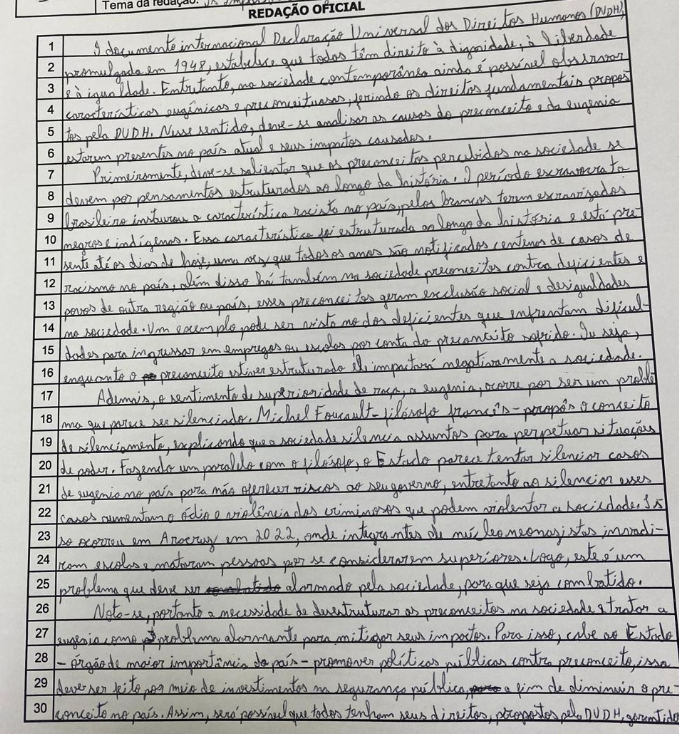 Tema da redação:
REDAÇÃO OFICIAL
1 O documento internacional Declaração Universal dos Direitos Humanos (DUDH),
2 promulgada em 1948, estabelece que todos têm direito à dignidade, à liberdade
3 e à igualdade. Entretanto, na sociedade contemporânea ainda é possível observar
4 características eugênicas e preconceituosas, ferindo os direitos fundamentais propos
5 tos pela DUDH. Nesse sentido, deve-se analisar as causas do preconceito e da eugenia
6 estarem presentes no país atual e seus impactos causados.
7 Primeiramente, deve-se salientar que os preconceitos percebidos na sociedade se
8 devem por pensamentos estruturados ao longo da história. O período escravocrata
9 brasileiro instaurou a característica racista no país, pelos brancos terem escravizados
10 negros e indígenas. Essa característica foi estruturada ao longo da história e está pre
11 sente até os dias de hoje, uma vez que todos os anos são notificados centenas de casos de
12 racismo no país, além disso há também na sociedade preconceitos contra deficientes e
13 povos de outra região ou país, esses preconceitos geram exclusão social e desigualdades
14 na sociedade. Um exemplo pode ser visto no dos deficientes que enfrentam dificul-
15 dades para ingressar em empregos ou escolas por conta do preconceito sofrido. Ou seja,
16 enquanto o preconceito estiver estruturado ele impactará negativamente a sociedade.
17 Ademais, o sentimento de superioridade de raça, a eugenia, ocorre por ser um proble
18 ma que parece ser silenciado. Michel Foucault - filósofo francês - propôs o conceito
19 de silenciamento, explicando que a sociedade silencia assuntos para perpetuar situações
20 de poder. Fazendo um paralelo com o filósofo, o Estado parece tentar silenciar casos
21 de eugenia no país para não oferecer riscos ao seu governo, entretanto ao silenciar esses
22 casos aumentam o ódio e violência dos criminosos que podem violentar a sociedade. Is
23 so ocorreu em Aracruz em 2022, onde integrantes de núcleo neonazistas invadi-
24 ram escolas e mataram pessoas por se considerarem superiores. Logo, este é um
25 problema que deve ser alarmado pela sociedade, para que seja combatido.
26 Nota-se, portanto a necessidade de desestruturar os preconceitos na sociedade e tratar a
27 eugenia como problema alarmante para mitigar seus impactos. Para isso, cabe ao Estado
28 - órgão de maior importância do país - promover políticas públicas contra preconceito, isso
29 deve ser feito por meio de investimentos na segurança pública, a fim de diminuir o pre-
30 conceito no país. Assim, será possível que todos tenham seus direitos, propostos pela DUDH, garantidos